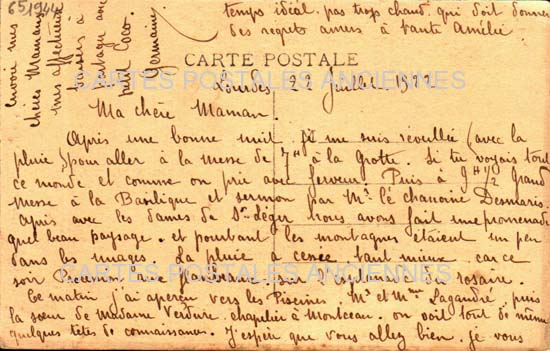 651944
CARTE POSTALE
Lourdes 22 Juillet 1922
Ma chère Maman.
Après une bonne nuit je me suis réveillée (avec la
pluie) pour aller à la messe de 7H à la Grotte. Si tu voyais tout
ce monde et comme on prie avec ferveur! Puis à 9H 1/2 Grand
messe à la Basilique et sermon par Mr le chanoine Desmaris.
Après avec les dames de St Léger nous avons fait une promenade
quel beau paysage. et pourtant les montagnes étaient un peu
dans les nuages. La pluie a cessé. tant mieux. car ce
soir Procession aux flambeaux sur l'esplanade du rosaire.
Ce matin j'ai aperçu vers les Piscines. Mr et Mme Lagandré, puis
la sœur de Madame Verdure. chapelier à Montceau. on voit tout de même
quelques têtes de connaissance. J'espère que vous allez bien. je vous
temps idéal. pas trop chaud. qui doit donner
des regrets amers à tante Amélie.
Envoie mes
chères Maman
mes affectueux
baisers à
partager avec
Coco.
Germaine
CARTES POSTALES ANCIENNES
CARTES POSTALES ANCIENNES